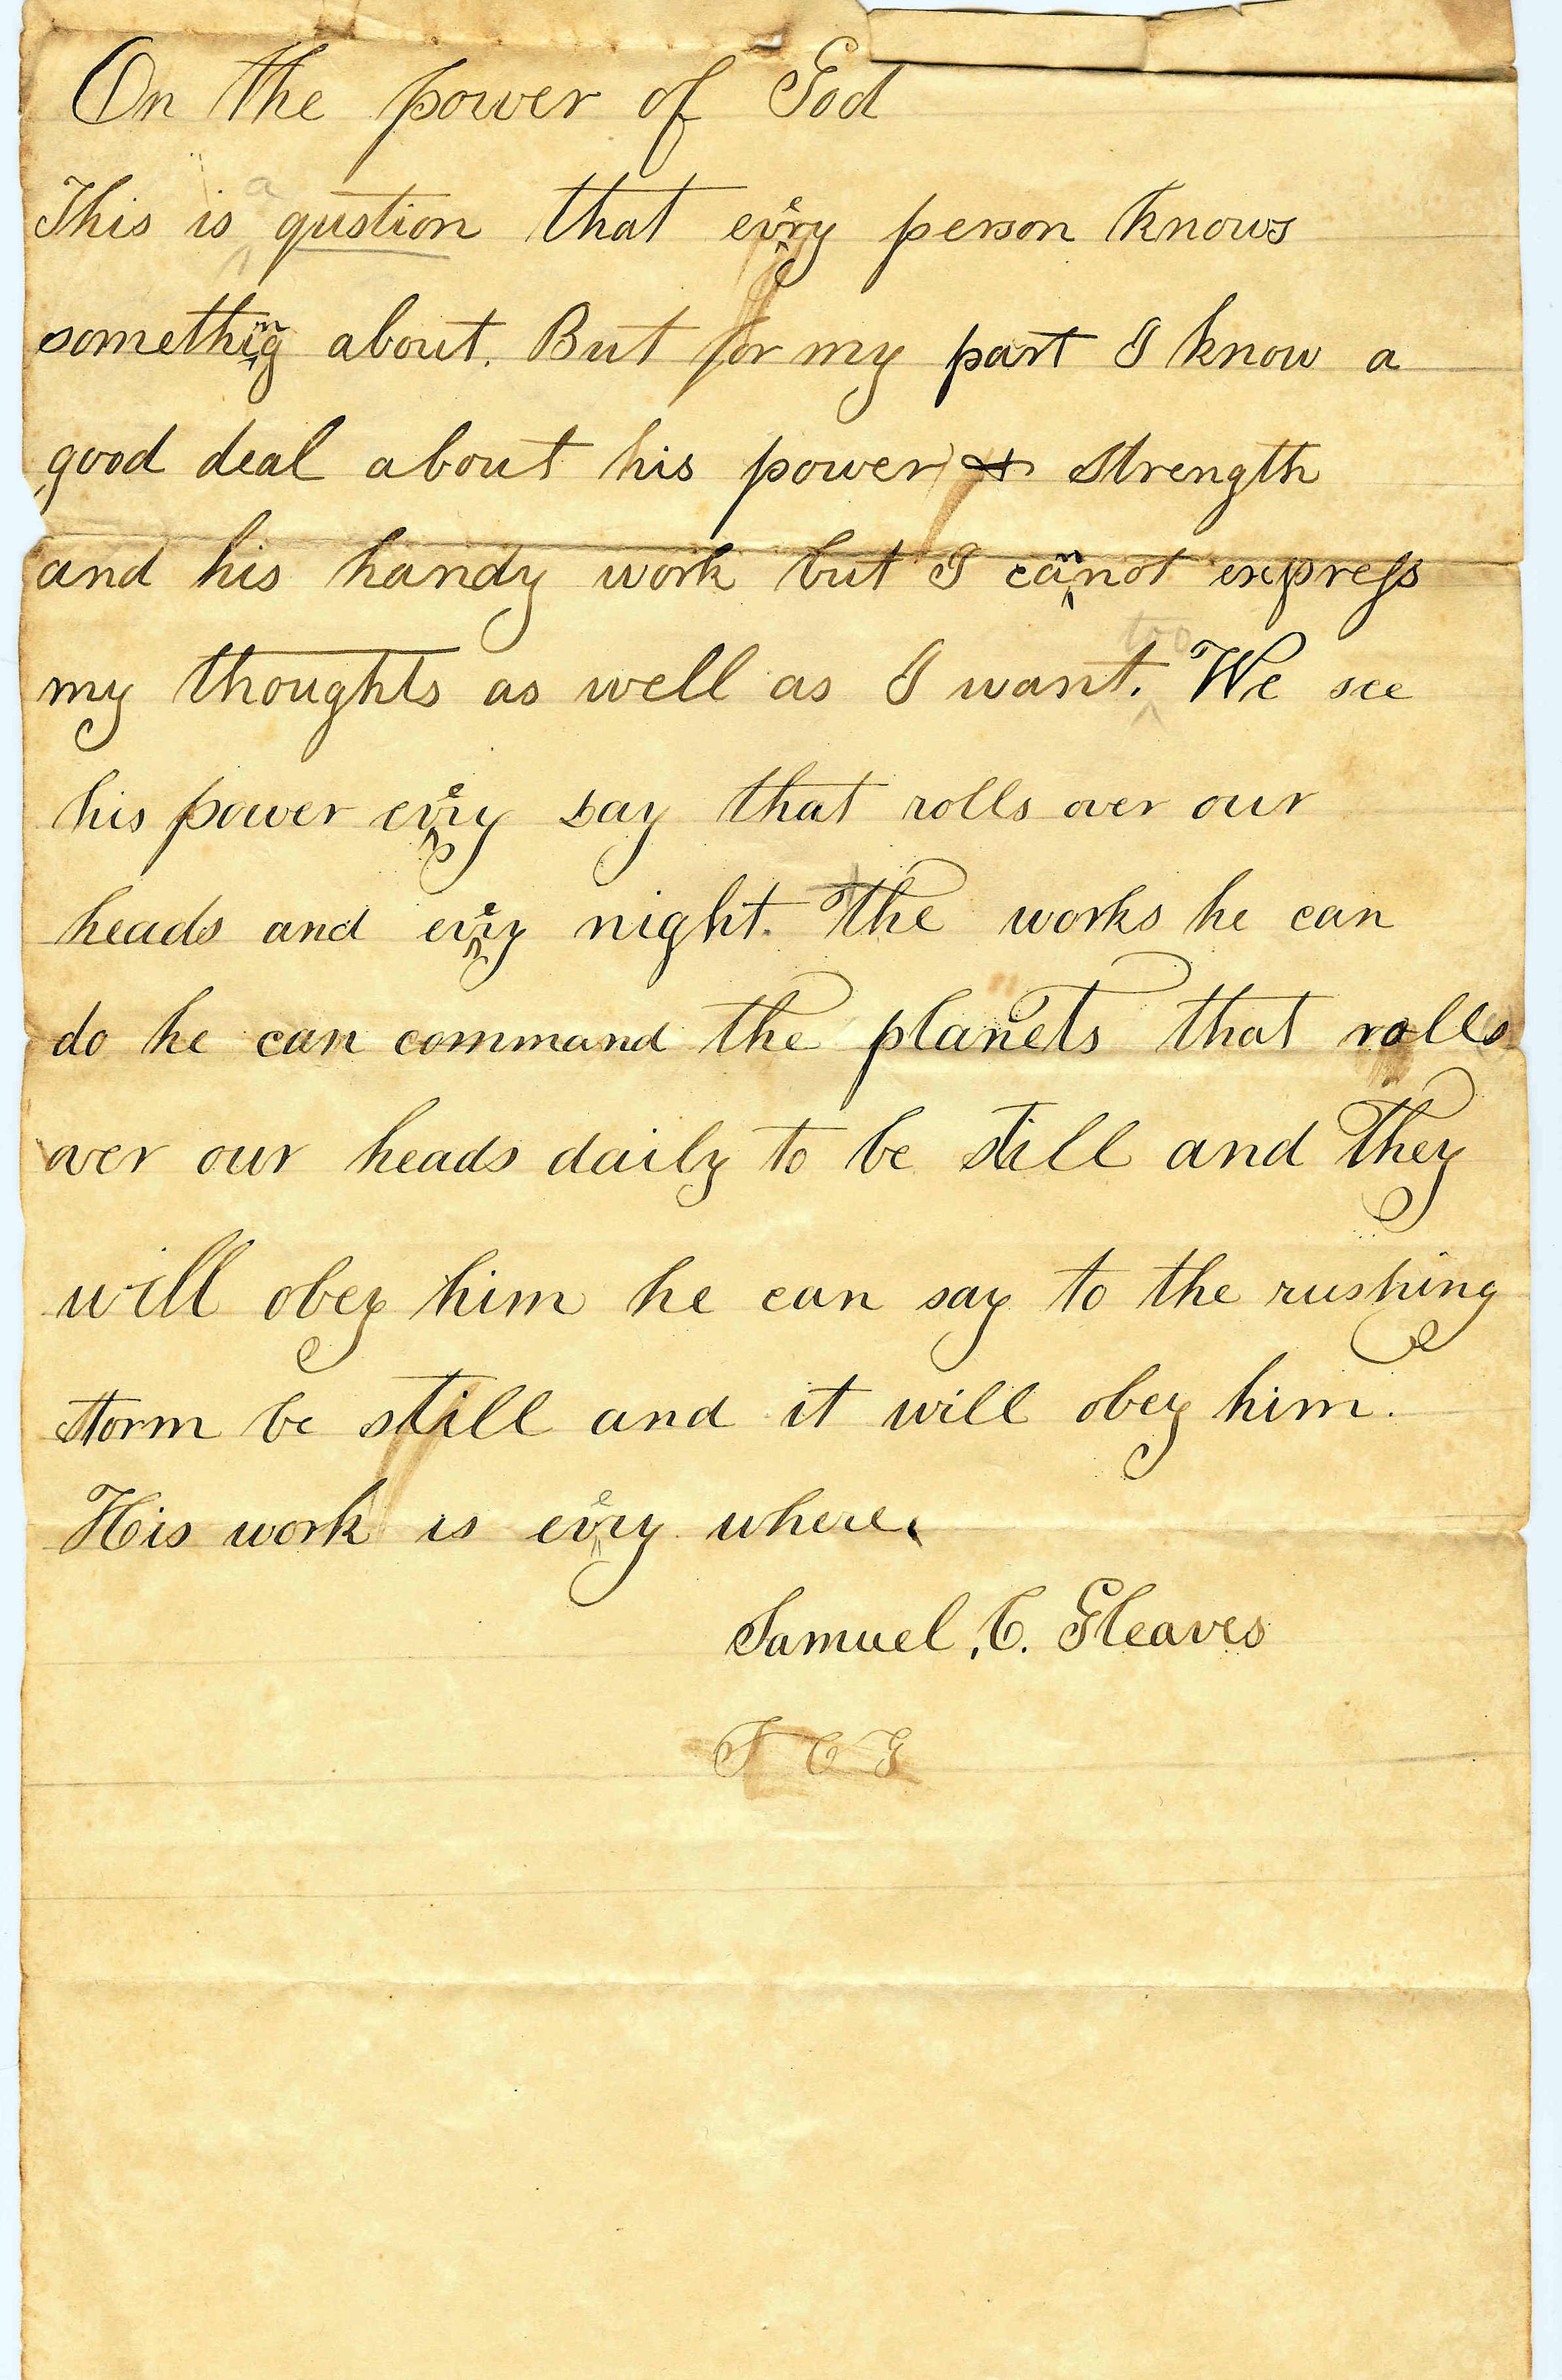 On the power of God
This is a qustion that every person knows
something about. But for my part I know a
good deal about his power & strength
and his handy work but I cannot express
my thoughts as well as I want too. We see
his power every day that rolls over our
heads and every night. The works he can
do he can command the planets that rolls
over our heads daily to be still and they
will obey him he can say to the rushing
storm be still and it will obey him.
His work is every where.
Samuel, C. Gleaves
S C G